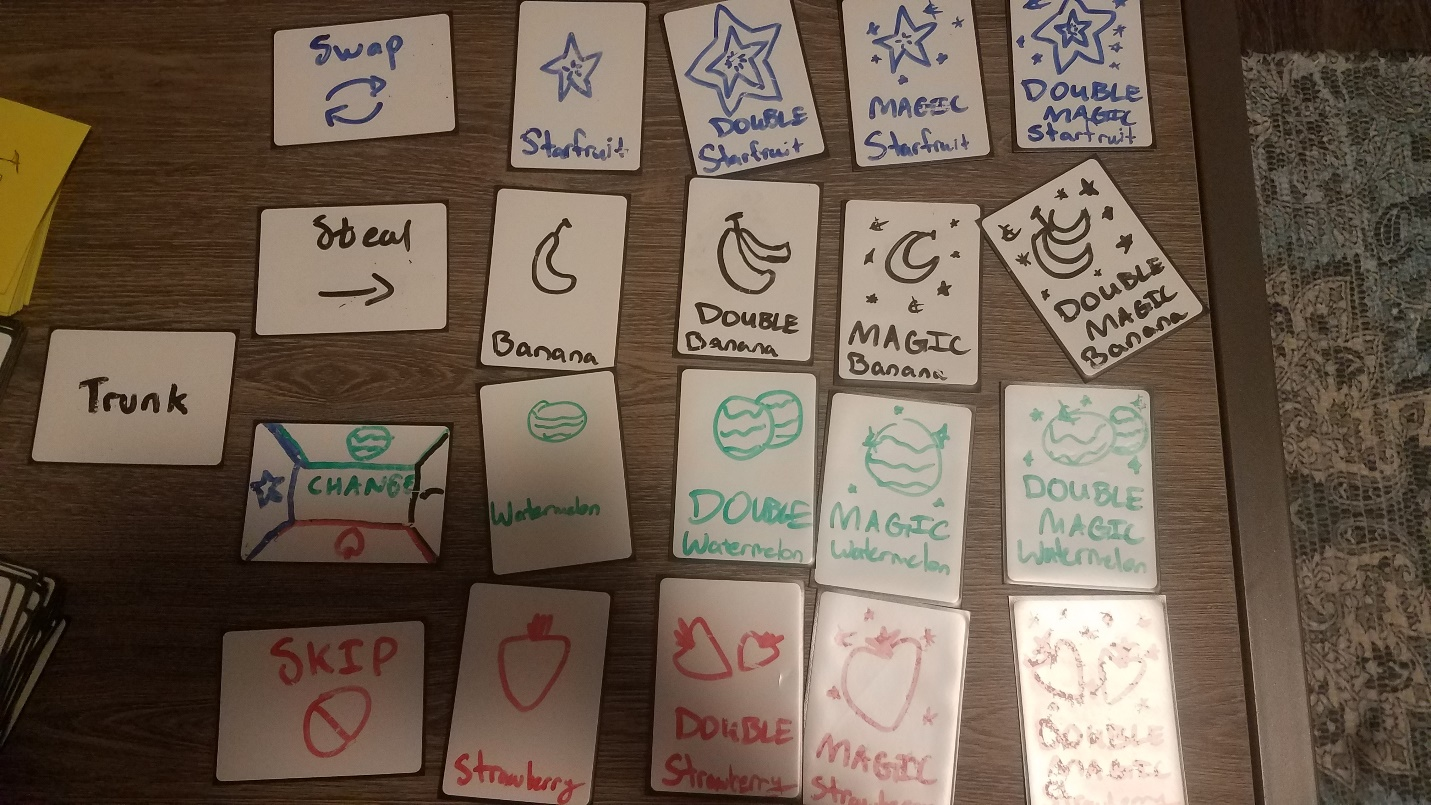 Swap
Starfruit
DOUBLE
Starfruit
MAGIC
Starfruit
DOUBLE
MAGIC
Starfruit
Steal
Banana
DOUBLE
Banana
MAGIC
Banana
DOUBLE
MAGIC
Banana
Trunk
CHANGE
Watermelon
DOUBLE
Watermelon
MAGIC
Watermelon
DOUBLE
MAGIC
Watermelon
SKIP
Strawberry
DOUBLE
Strawberry
MAGIC
Strawberry
DOUBLE
MAGIC
Strawberry